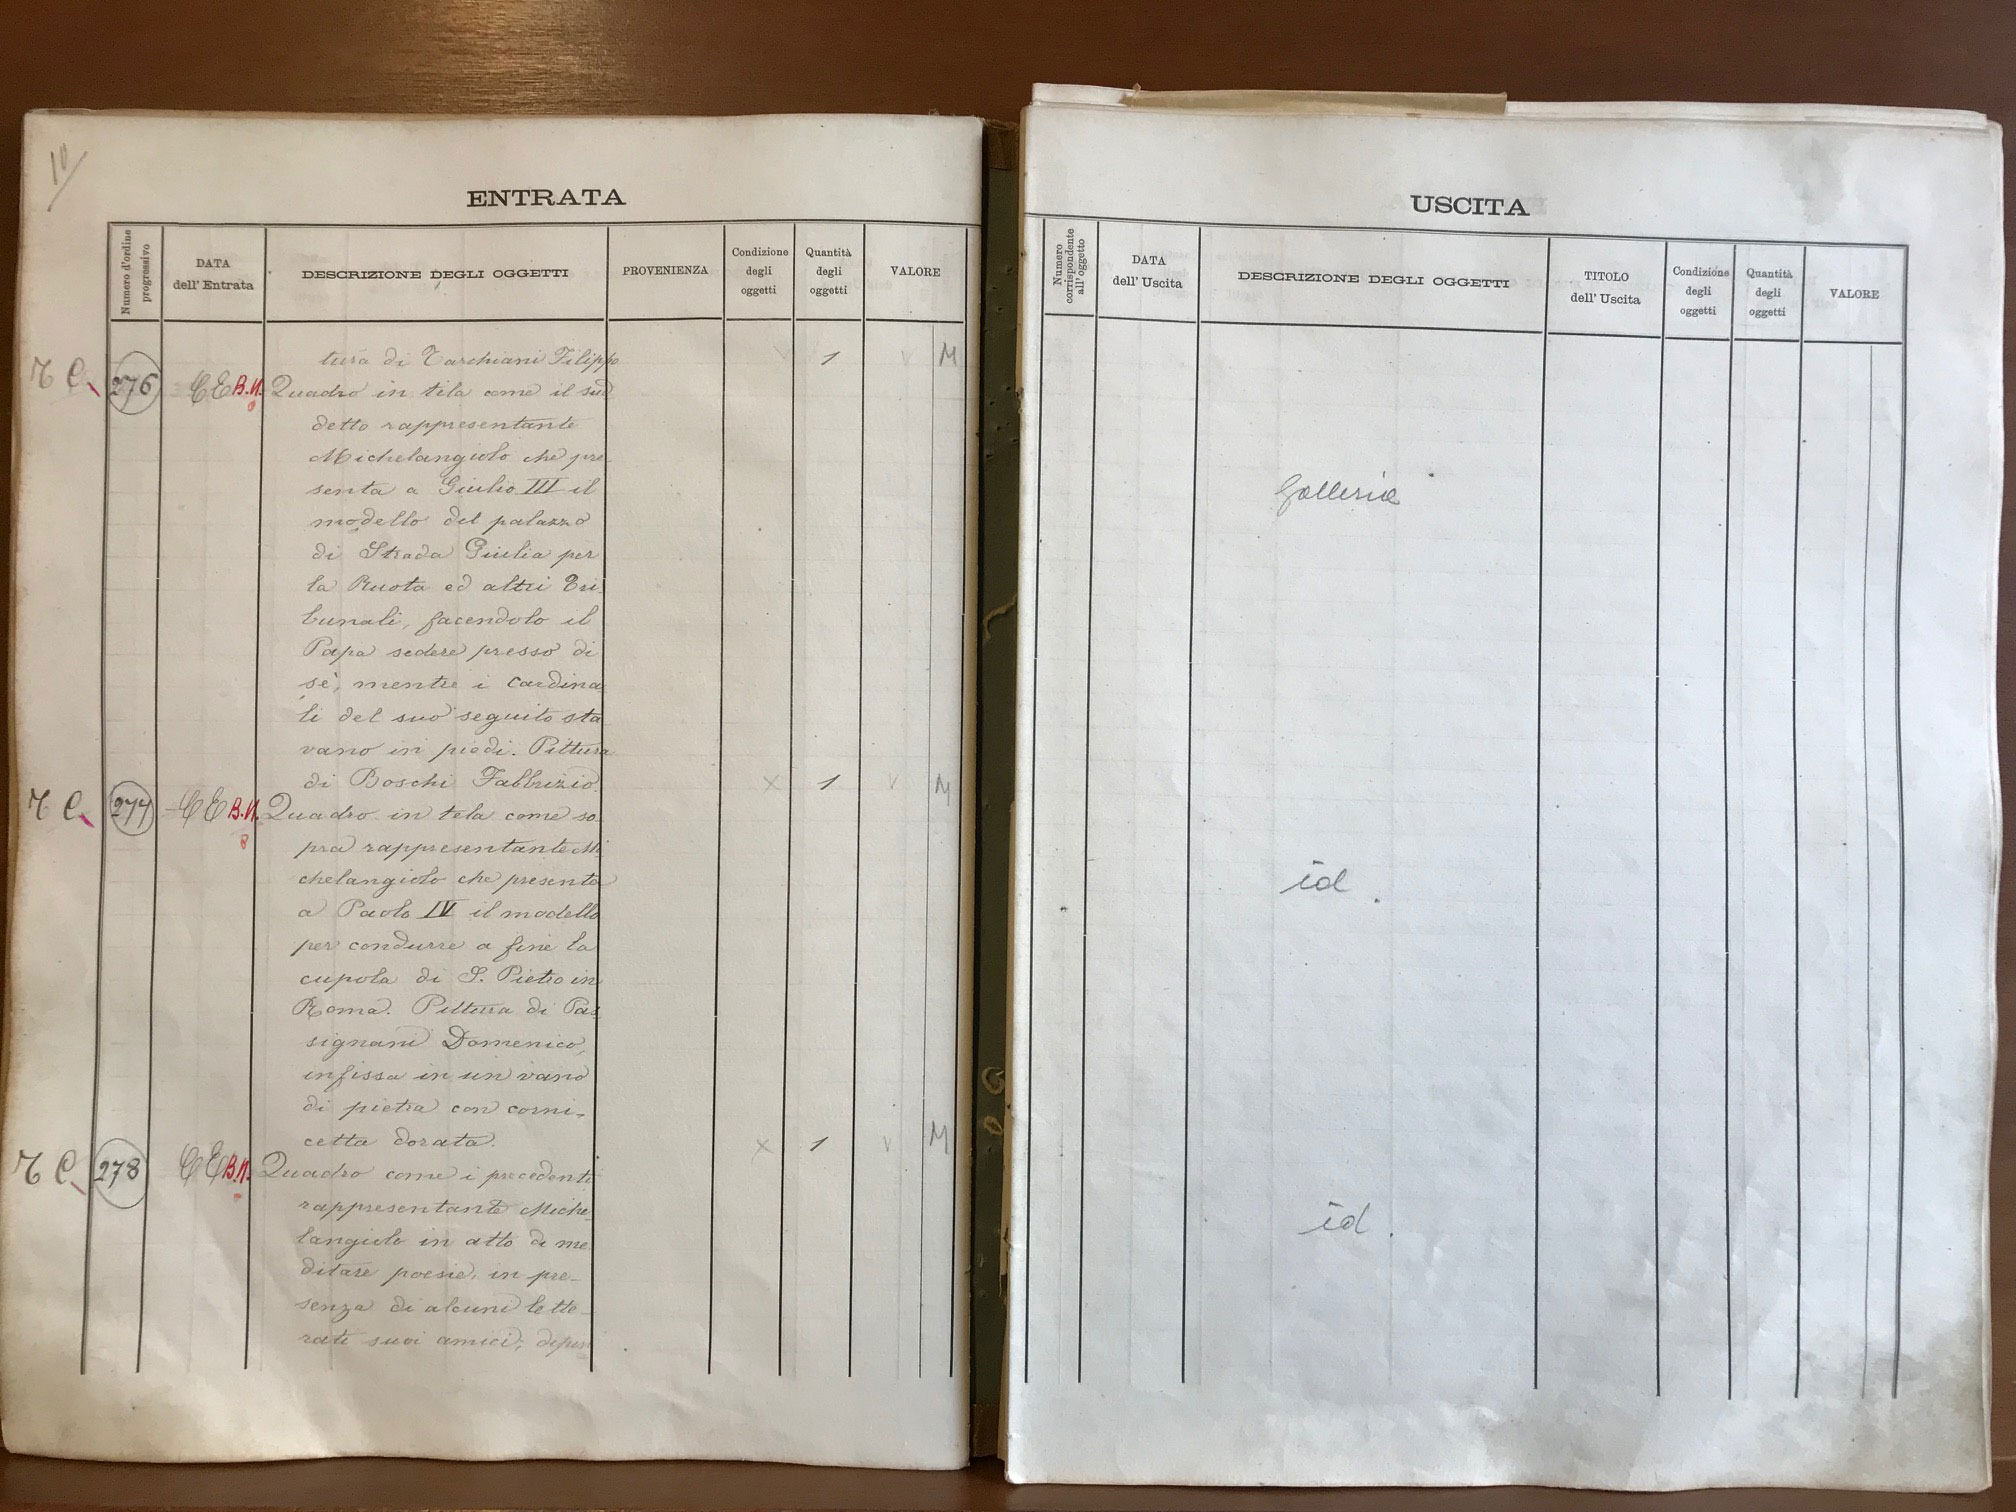 10
ENTRATA
Numero d'ordine progressivo
DATA dell' Entrata
DESCRIZIONE DEGLI OGGETTI
PROVENIENZA
Condizione degli oggetti
Quantità degli oggetti
VALORE
tura di Tarchiani Filippo 1 M
276 CE B.N. Quadro in tela come il sud
detto rappresentante
Michelangiolo che pre
senta a Giulio III il
modello del palazzo
di Strada Giulia per
la Ruota ed altri Tri-
bunali, facendolo il
Papa sedere presso di
sè, mentre i Cardina
li del suo seguito sta
vano in piedi. Pittura
di Boschi Fabbrizio. x 1 v M
277 CE B.N. Quadro in tela come so
pra rappresentante Mi
chelangiolo che presenta
a Paolo IV il modello
per condurre a fine la
cupola di S. Pietro in
Roma. Pittura di Pas
signani Domenico,
infissa in un vano
di pietra con corni-
cetta dorata. x 1 v M
278 CE B.N. Quadro come i precedenti
rappresentante Miche
langiolo in atto di me
ditare poesie, in pre-
senza di alcuni lette-
rati suoi amici;
USCITA
Numero corrispondente all'oggetto
DATA dell' Uscita
DESCRIZIONE DEGLI OGGETTI
TITOLO dell' Uscita
Condizione degli oggetti
Quantità degli oggetti
VALORE
Galleria
id.
id.